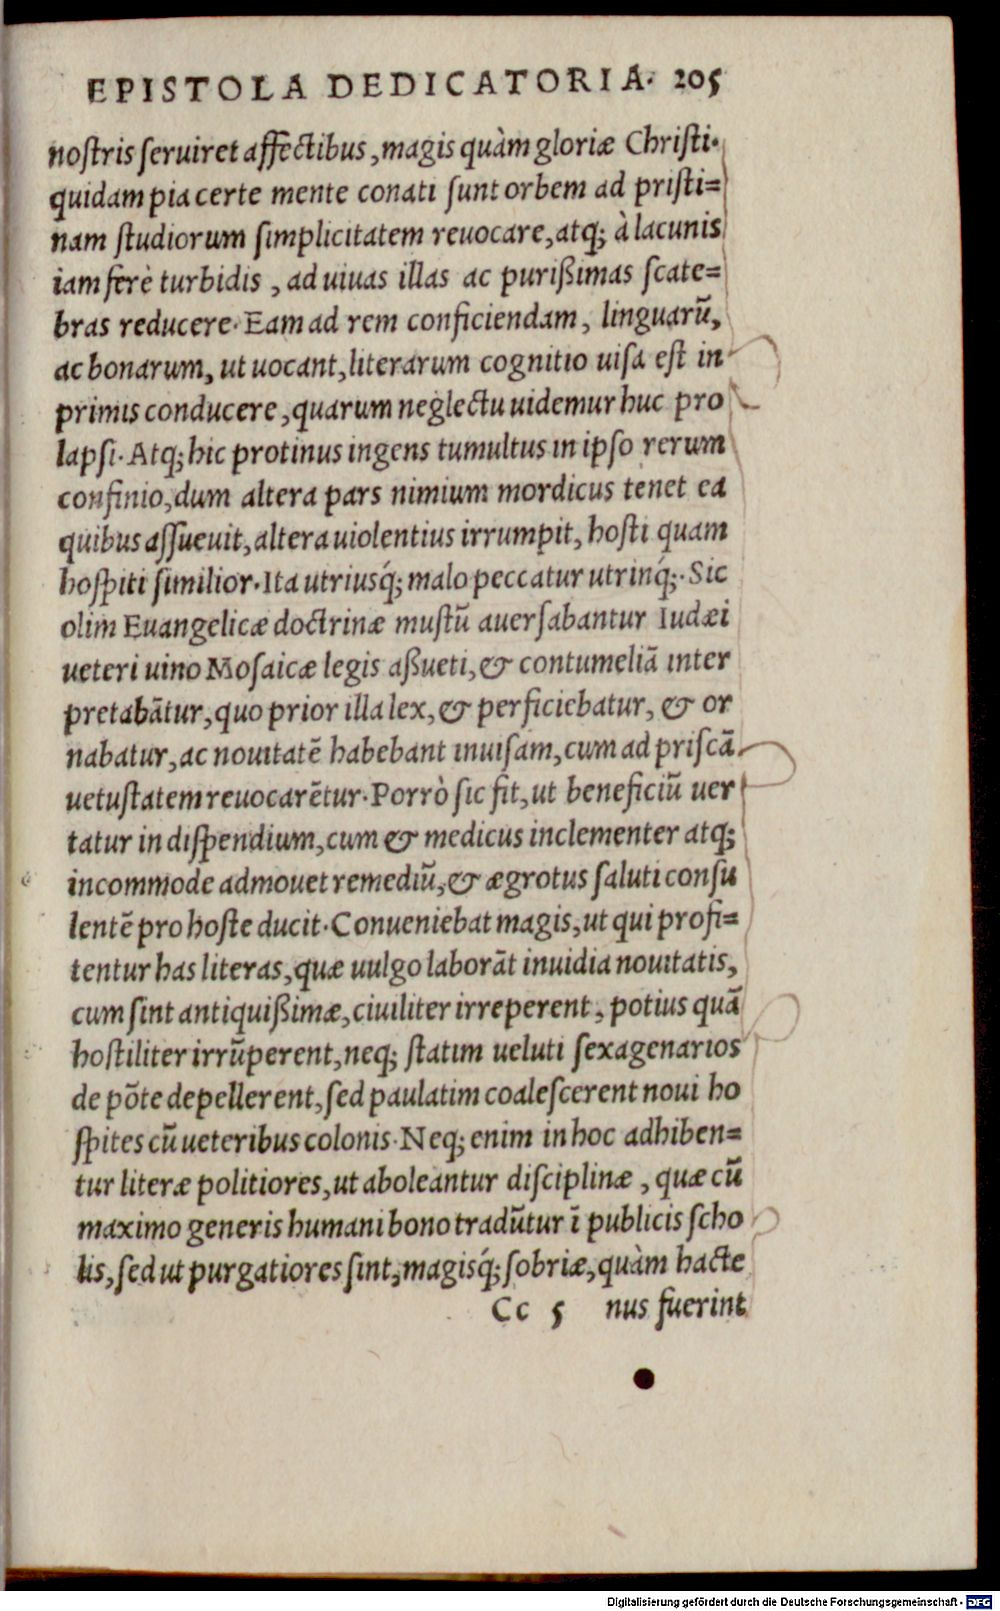 EPISTOLA DEDICATORIA. 205
noſtris ſeruiret affectibus, magis quàm gloriæ Chriſti.
quidam pia certe mente conati ſunt orbem ad priſti=
nam ſtudiorum ſimplicitatem reuocare, atq; à lacunis
iam ferè turbidis, ad uiuas illas ac purißimas ſcate=
bras reducere. Eam ad rem conficiendam, linguarũ,
ac bonarum, ut uocant, literarum cognitio uiſa eſt in
primis conducere, quarum neglectu uidemur huc pro
lapſi. Atq; hic protinus ingens tumultus in ipſo rerum
confinio, dum altera pars nimium mordicus tenet ea
quibus aſſueuit, altera uiolentius irrumpit, hoſti quam
hoſpiti ſimilior. Ita utriusq́; malo peccatur utrinq́;. Sic
olim Euangelicæ doctrinæ muſtũ auerſabantur Iudæi
ueteri uino Moſaicæ legis aßueti, & contumeliã inter
pretabãtur, quo prior illa lex, & perficiebatur, & or
nabatur, ac nouitatẽ habebant inuiſam, cum ad priſcã
uetuſtatem reuocarẽtur. Porrò ſic fit, ut beneficiũ uer
tatur in diſpendium, cum & medicus inclementer atq;
incommode admouet remediũ, & ægrotus ſaluti conſu
lentẽ pro hoſte ducit. Conueniebat magis, ut qui profi=
tentur has literas, quæ uulgo laborãt inuidia nouitatis,
cum ſint antiquißimæ, ciuiliter irreperent, potius quã
hoſtiliter irrũperent, neq; ſtatim ueluti ſexagenarios
de põte depellerent, ſed paulatim coaleſcerent noui ho
ſpites cũ ueteribus colonis. Neq; enim in hoc adhiben=
tur literæ politiores, ut aboleantur diſciplinæ, quæ cũ
maximo generis humani bono tradũtur ĩ publicis ſcho
lis, ſed ut purgatiores ſint, magisq́; ſobriæ, quàm hacte
Cc 5 nus fuerint
Digitalisierung gefördert durch die Deutsche Forschungsgemeinschaft - DFG